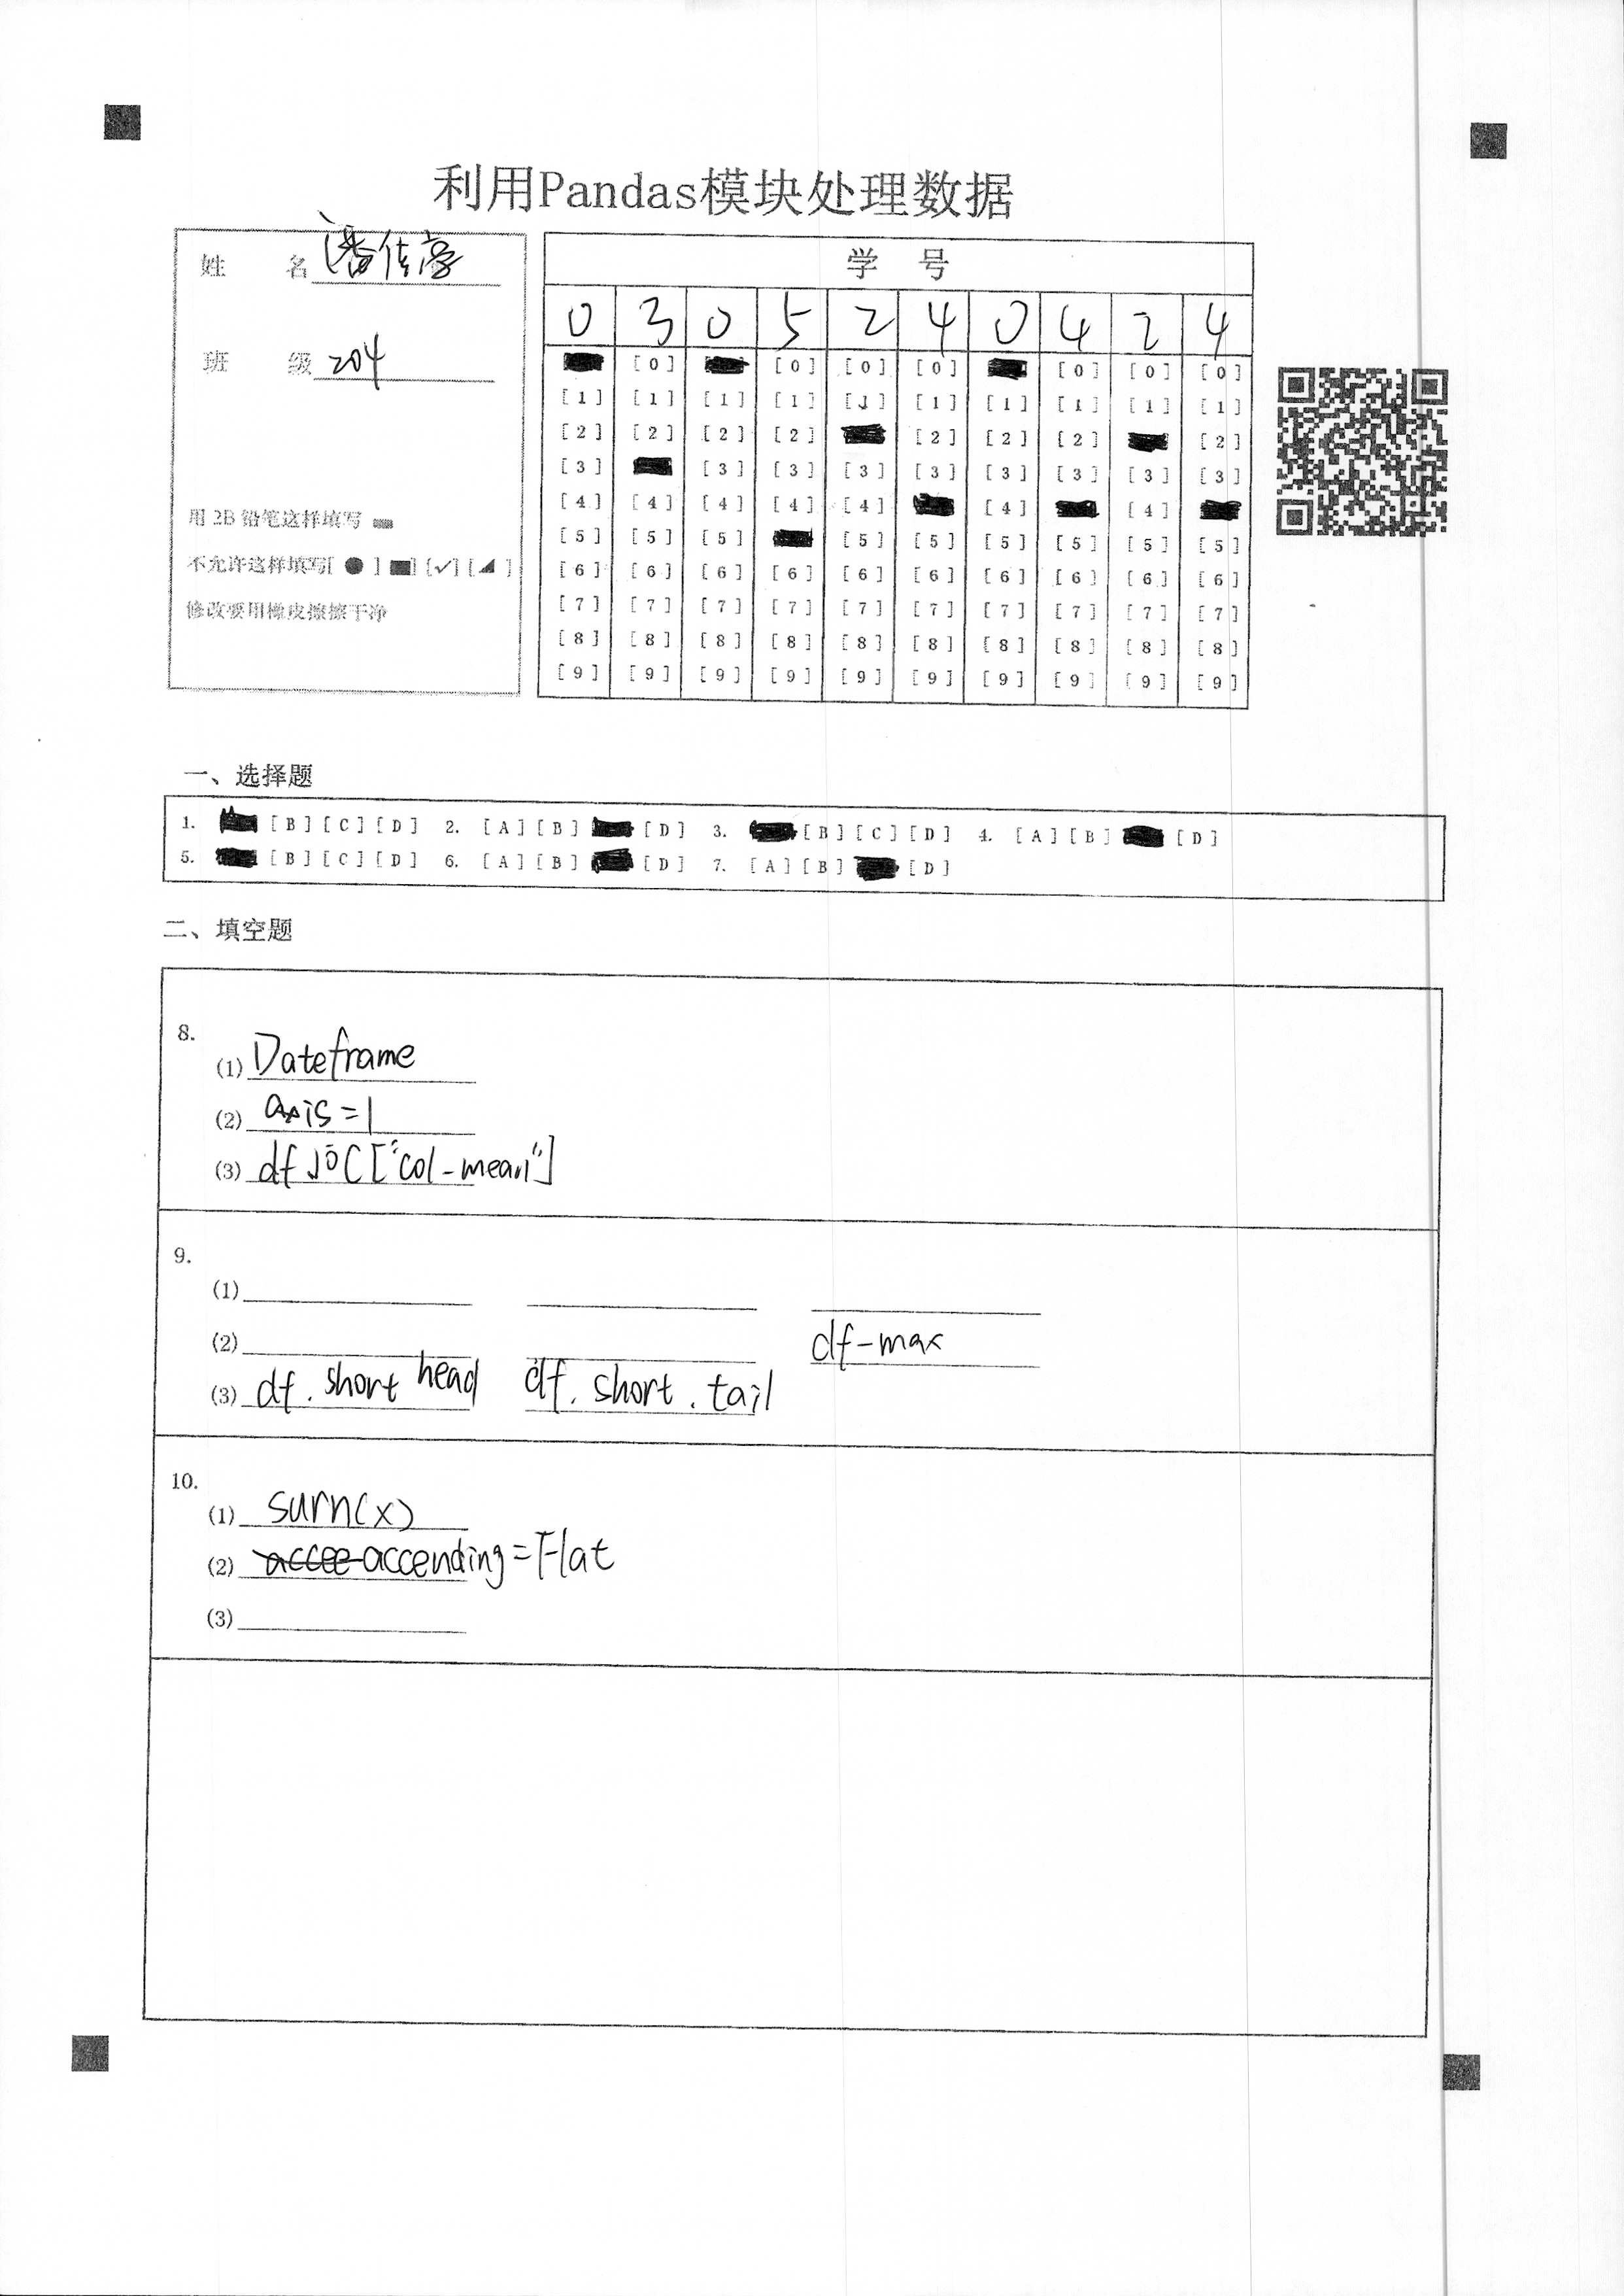 利用Pandas模块处理数据
姓 名 潘佳豪
班 级 204
用 2B 铅笔这样填写
不允许这样填写[ ● ] ■] [✓] [◢ ]
修改要用橡皮擦擦干净
学 号
0 3 0 5 2 4 0 4 2 4
[0] [0] [0] [0] [0] [0] [0]
[1] [1] [1] [1] [1] [1] [1] [1] [1] [1]
[2] [2] [2] [2] [2] [2] [2] [2]
[3] [3] [3] [3] [3] [3] [3] [3] [3]
[4] [4] [4] [4] [4] [4] [4]
[5] [5] [5] [5] [5] [5] [5] [5] [5]
[6] [6] [6] [6] [6] [6] [6] [6] [6] [6]
[7] [7] [7] [7] [7] [7] [7] [7] [7] [7]
[8] [8] [8] [8] [8] [8] [8] [8] [8] [8]
[9] [9] [9] [9] [9] [9] [9] [9] [9] [9]
一、选择题
1. [B] [C] [D] 2. [A] [B] [D] 3. [B] [C] [D] 4. [A] [B] [D]
5. [B] [C] [D] 6. [A] [B] [D] 7. [A] [B] [D]
二、填空题
8.
(1) Dateframe
(2) axis=1
(3) df.loc["col-mean"]
9.
(1)
(2) df-max
(3) df. short head df. short . tail
10.
(1) sum(x)
(2) accending=Flat
(3)